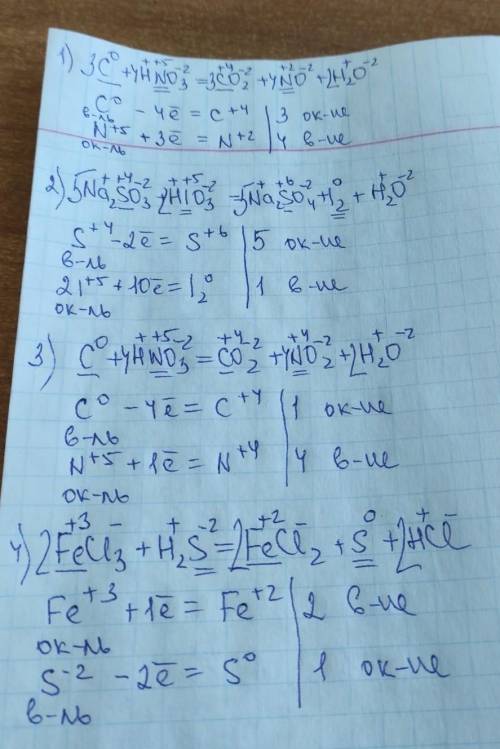 1) 3C⁰ + 4H⁺N⁺⁵O₃⁻² = 3C⁺⁴O₂⁻² + 4N⁺²O⁻² + 2H₂⁺O⁻²
C⁰ - 4ē = C⁺⁴ | 3 ок-ие
в-ль
N⁺⁵ + 3ē = N⁺² | 4 в-ие
ок-ль
2) 5Na₂⁺S⁺⁴O₃⁻² 2H⁺I⁺⁵O₃⁻² = 5Na₂⁺S⁺⁶O₄⁻² + I₂⁰ + H₂⁺O⁻²
S⁺⁴ - 2ē = S⁺⁶ | 5 ок-ие
в-ль
2I⁺⁵ + 10ē = I₂⁰ | 1 в-ие
ок-ль
3) C⁰ + 4H⁺N⁺⁵O₃⁻² = C⁺⁴O₂⁻² + 4N⁺⁴O₂⁻² + 2H₂⁺O⁻²
C⁰ - 4ē = C⁺⁴ | 1 ок-ие
в-ль
N⁺⁵ + 1ē = N⁺⁴ | 4 в-ие
ок-ль
4) 2Fe⁺³Cl₃⁻ + H₂⁺S⁻² = 2Fe⁺²Cl₂⁻ + S⁰ + 2H⁺Cl⁻
Fe⁺³ + 1ē = Fe⁺² | 2 в-ие
ок-ль
S⁻² - 2ē = S⁰ | 1 ок-ие
в-ль